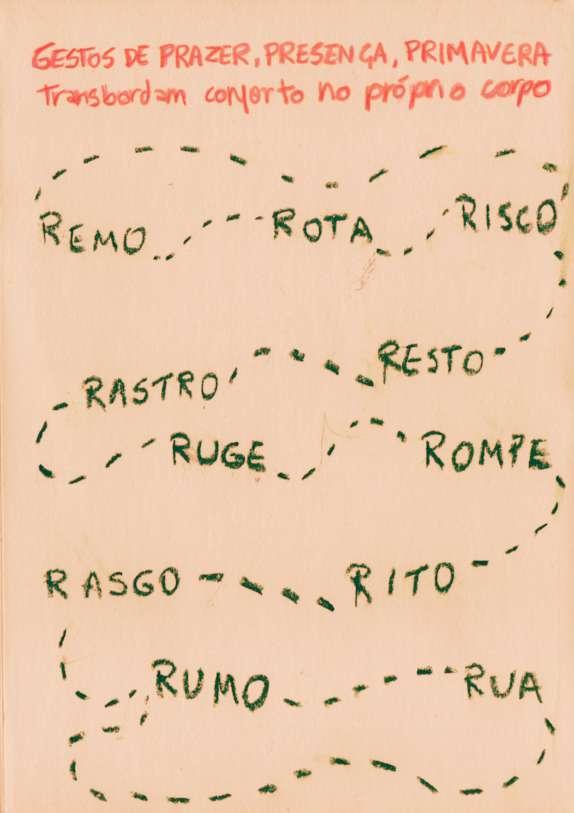 GESTOS DE PRAZER, PRESENÇA, PRIMAVERA
Transbordam conforto no próprio corpo
REMO ROTA RISCO
RESTO
RASTRO
RUGE ROMPE
RASGO RITO
RUMO RUA